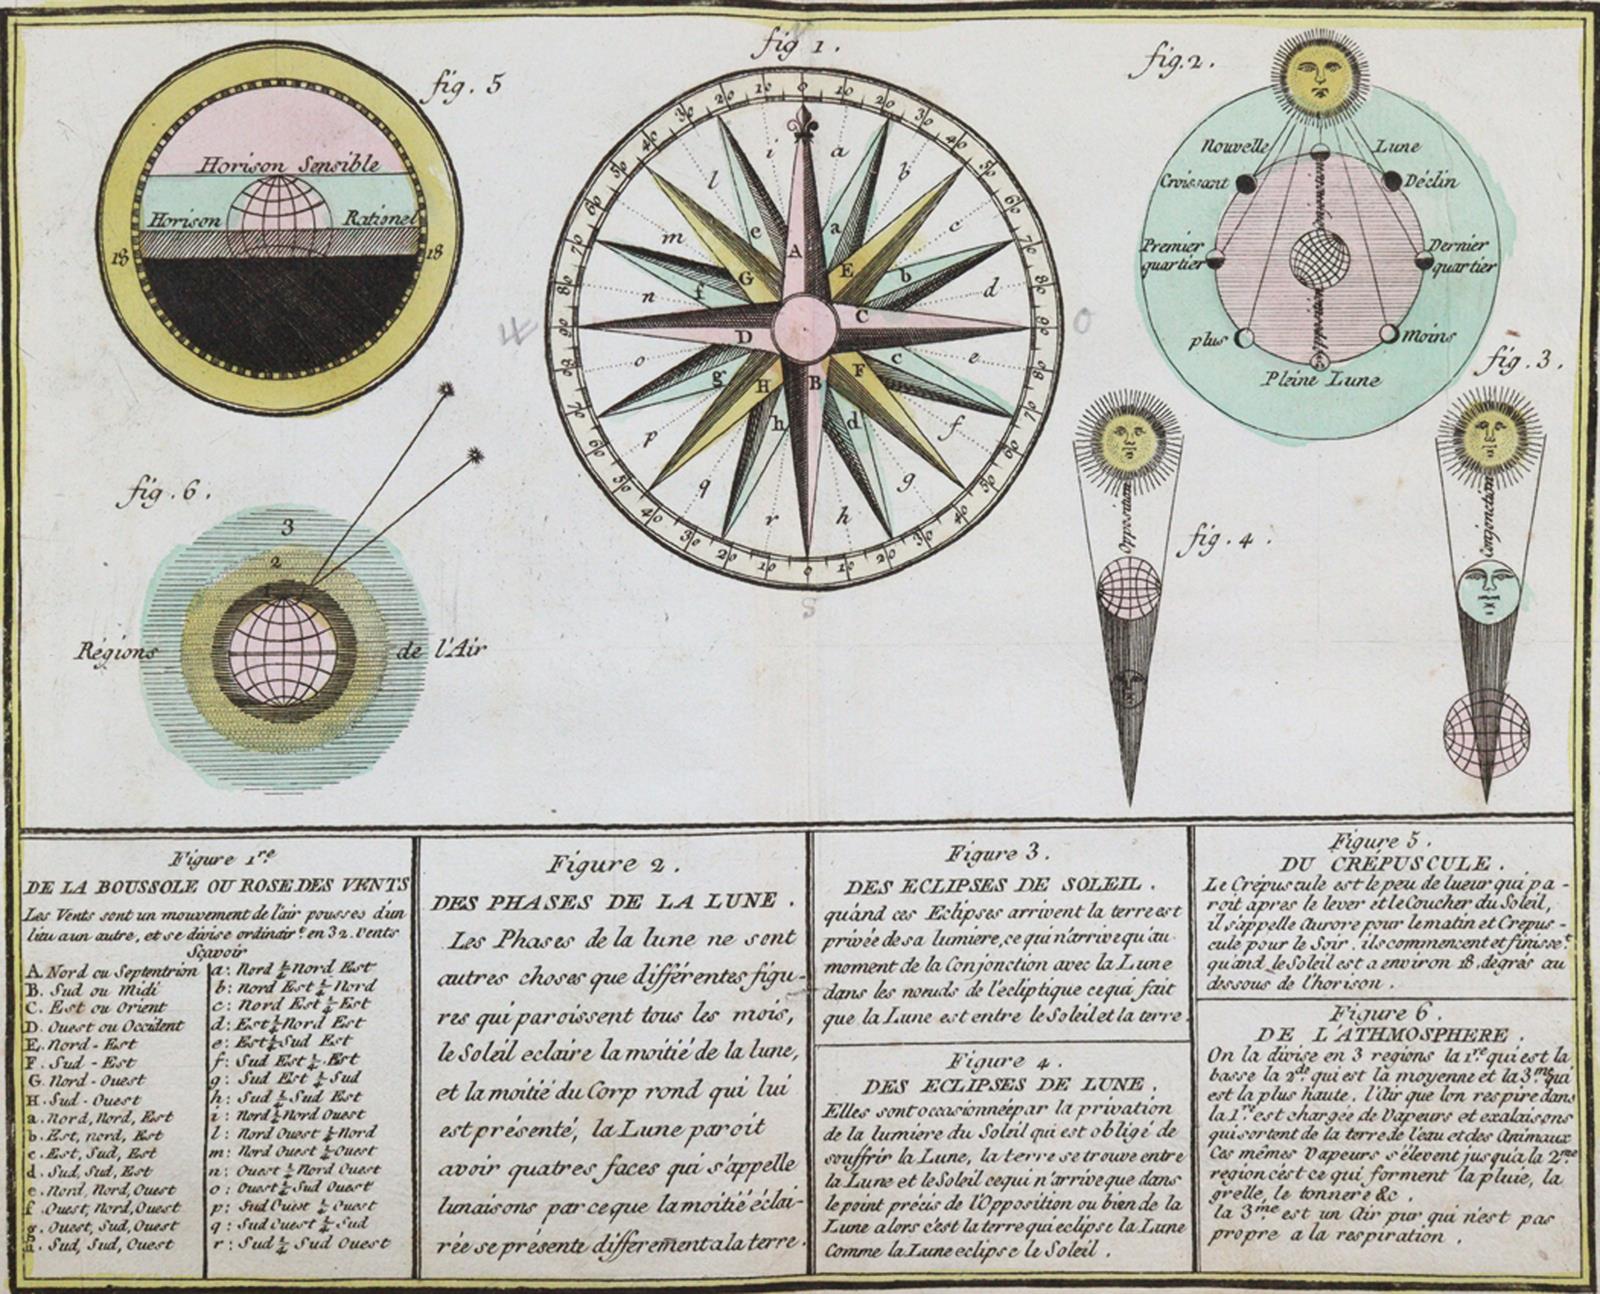 fig. 5
Horison Sensible
Horison Rationel
18 18
fig 1.
0 10 20 30 40 50 60 70 80 90 80 70 60 50 40 30 20 10 0 10 20 30 40 50 60 70 80 90 80 70 60 50 40 30 20 10
i a
l b
e a
m c
G A E
f b
n d
D C
o e
g c
H B F
p h d f
q g
r h
fig. 2.
Nouvelle Lune
Croissant Déclin
Premier quartier
Dernier quartier
plus moins
Pleine Lune
fig. 3.
Conjonction
fig. 4.
Opposition
fig. 6.
3
2
1
Régions de l'Air
Figure 1.re
DE LA BOUSSOLE OU ROSE DES VENTS
Les Vents sont un mouvement de l'air pousses d'un
lieu a un autre, et se divise ordinair.t en 32. Vents
Sçavoir
A. Nord ou Septentrion
B. Sud ou Midi
C. Est ou Orient
D. Ouest ou Occident
E. Nord-Est
F. Sud-Est
G. Nord-Ouest
H. Sud-Ouest
a. Nord, Nord, Est
b. Est, nord, Est
c. Est, Sud, Est
d. Sud, Sud, Est
e. Nord, Nord, Ouest
f. Ouest, Nord, Ouest
g. Ouest, Sud, Ouest
h. Sud, Sud, Ouest
a: Nord ¼ Nord Est
b: nord Est ¼ Nord
c: Nord Est ¼ Est
d: Est ¼ Nord Est
e: Est ¼ Sud Est
f: Sud Est ¼ Est
g: Sud Est ¼ Sud
h: Sud ¼ Sud Est
i: Nord ¼ Nord Ouest
l: Nord Ouest ¼ Nord
m: Nord Ouest ¼ Ouest
n: Ouest ¼ Nord Ouest
o: Ouest ¼ Sud Ouest
p: Sud Ouest ¼ Ouest
q: Sud Ouest ¼ Sud
r: Sud ¼ Sud Ouest
Figure 2.
DES PHASES DE LA LUNE.
Les Phases de la lune ne sont
autres choses que différentes figu-
res qui paroissent tous les mois,
le Soleil eclaire la moitié de la lune,
et la moitié du Corp rond qui lui
est présenté, la Lune paroit
avoir quatres faces qui s'appelle
lunaisons parceque la moitié éclai-
rée se présente differement a la terre.
Figure 3.
DES ECLIPSES DE SOLEIL.
quánd ces Eclipses arrivent la terre est
privée de sa lumiere, ce qui n'arrive qu'au
moment de la Conjonction avec la Lune
dans les nœuds de l'ecliptique ce qui fait
que la Lune est entre le Soleil et la terre.
Figure 4.
DES ECLIPSES DE LUNE.
Elles sont occasionnée par la privation
de la lumiere du Soleil qui est obligé de
souffrir la Lune, la terre se trouve entre
la Lune et le Soleil ce qui n'arrive que dans
le point précis de l'Opposition ou bien de la
Lune alors c'est la terre qui eclipse la Lune
Comme la Lune eclipse le Soleil.
Figure 5.
DU CRÉPUSCULE.
Le Crépuscule est le peu de lueur qui pa-
roit après le lever et le Coucher du Soleil,
il s'appelle Aurore pour le matin et Crepus-
cule pour le Soir, ils commencent et finisse.t
quand le Soleil est a environ 18. degrés au
dessous de l'horison.
Figure 6.
DE L'ATHMOSPHERE.
On la divise en 3 regions la 1.re qui est la
basse la 2.de qui est la moyenne et la 3.me qui
est la plus haute. l'air que l'on respire dans
la 1.re est chargée de Vapeurs et exalaisons
qui sortent de la terre de l'eau et des Animaux
Ces mêmes Vapeurs s'élevent jusqu'a la 2.me
region c'ést ce qui forment la pluie, la
grelle, le tonnere &c.
la 3.me est un Air pur qui n'est pas
propre a la respiration.